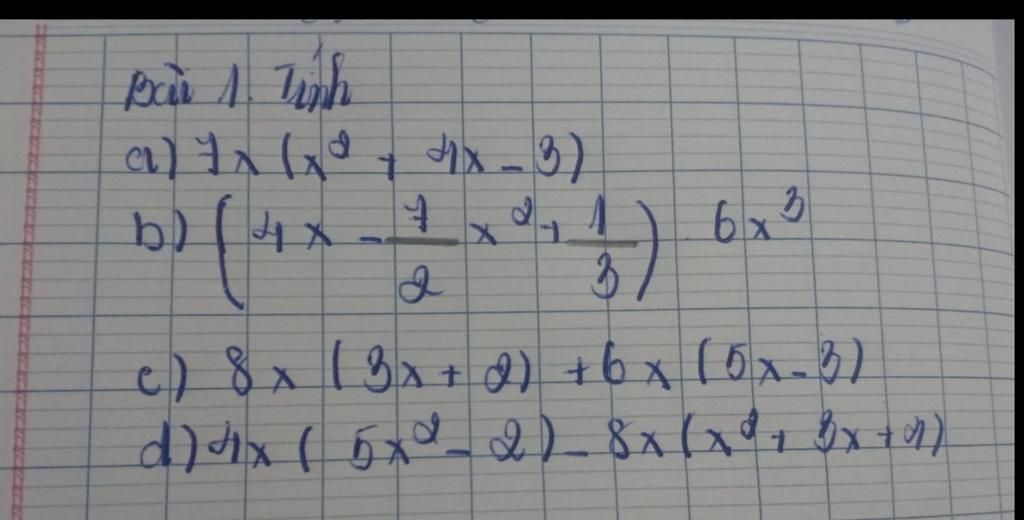 Bài 1. Tính
a) 7x (x² + 4x - 3)
b) (4x - 7/2 x² + 1/3) . 6x³
c) 8x (3x + 2) + 6x (5x - 3)
d) 4x ( 5x² - 2) - 8x (x² + 3x + 4)